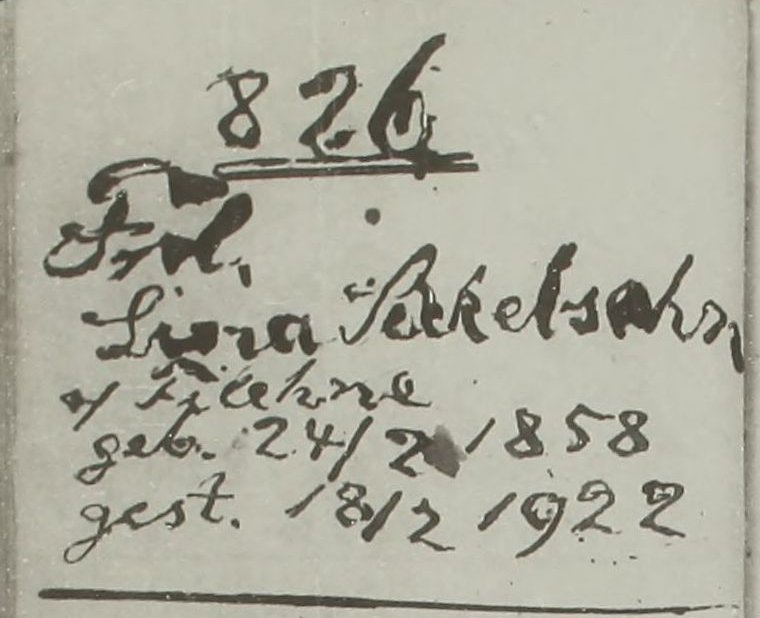 826
Frl.
Liona Seckelsohn
a/ Filehne
geb. 24/2 1858
gest. 18/2 1922